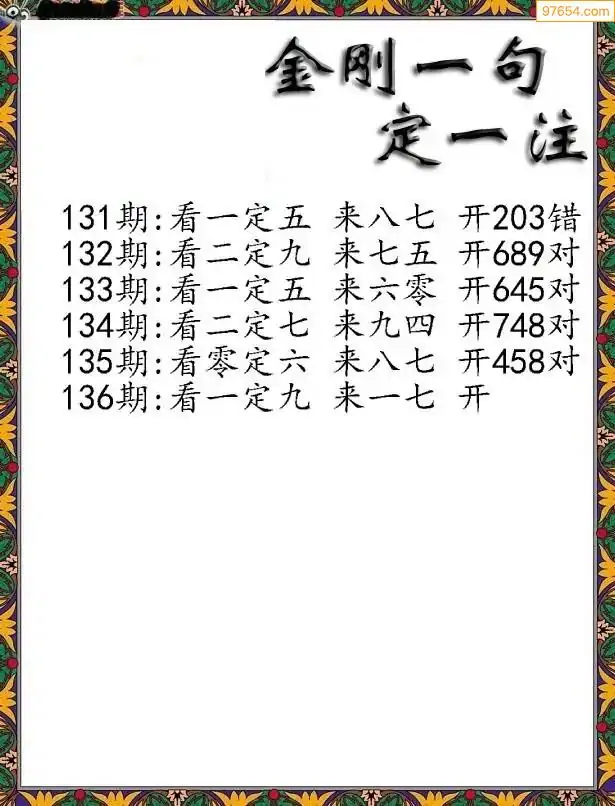 97654.com
金刚一句
定一注
131期:看一定五 来八七 开203错
132期:看二定九 来七五 开689对
133期:看一定五 来六零 开645对
134期:看二定七 来九四 开748对
135期:看零定六 来八七 开458对
136期:看一定九 来一七 开